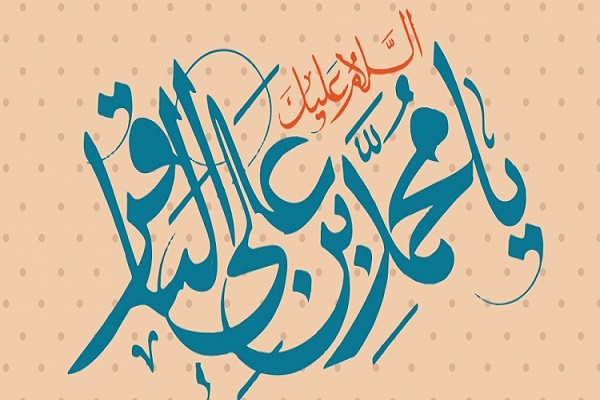 السَّلامُ عليك
يا محمدُ بن علي الباقر